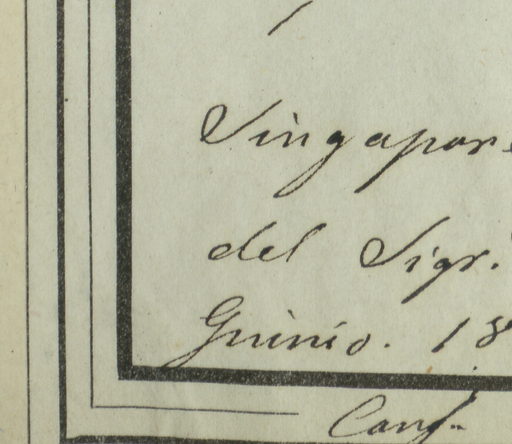 Singapore
del Sigr.
Giunio. 18